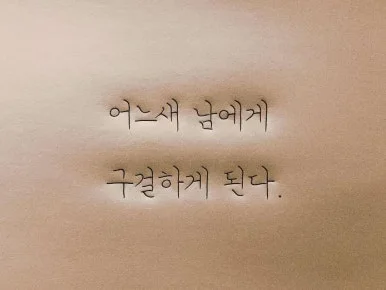 어느새 남에게
구걸하게 된다.